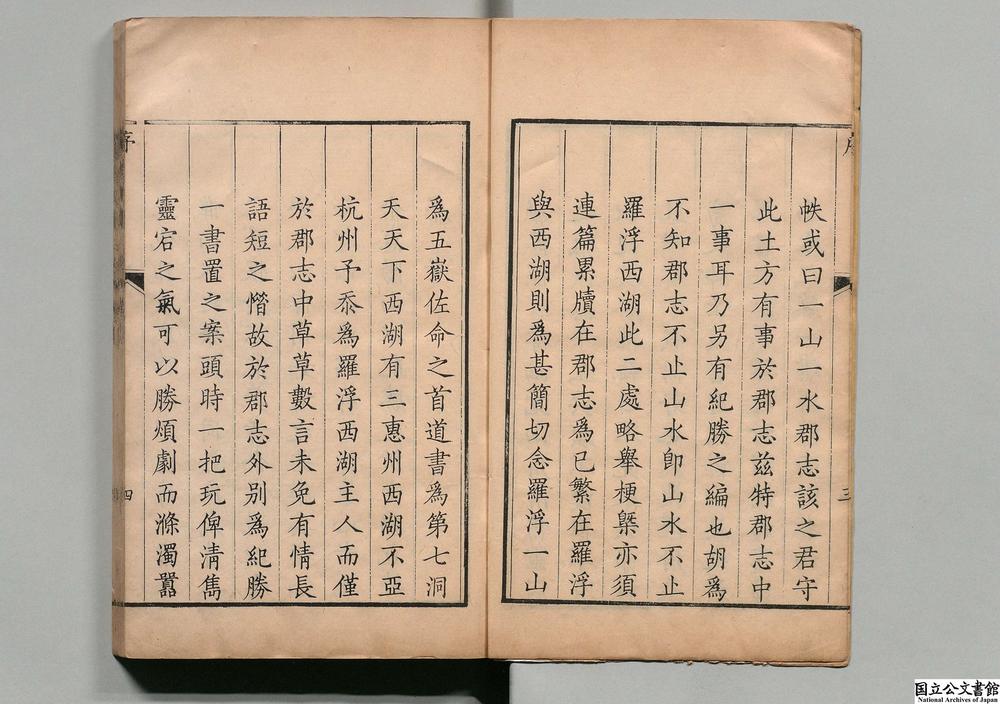 帙或曰一山一水郡志該之君守
此土方有事於郡志兹特郡志中
一事耳乃另有紀勝之編也胡為
不知郡志不止山水卽山水不止
羅浮西湖此二處略舉梗槩亦須
連篇累牘在郡志為已繁在羅浮
與西湖則為甚簡切念羅浮一山
三
為五嶽佐命之首道書為第七洞
天天下西湖有三惠州西湖不亞
杭州予忝為羅浮西湖主人而僅
於郡志中草草數言未免有情長
語短之憯故於郡志外别為紀勝
一書置之案頭時一把玩俾淸雋
靈宕之氣可以勝煩劇而滌濁囂
序
四
国立公文書館
National Archives of Japan